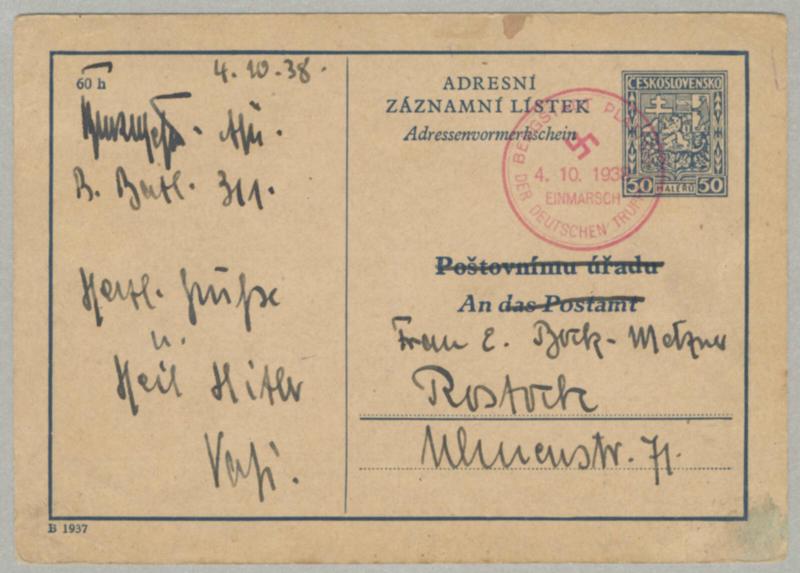 60 h
4.10.38.
B. Batl. 311.
Herzl. Grüße
u.
Heil Hitler
B 1937
ADRESNÍ
ZÁZNAMNÍ LÍSTEK
Adressenvormerkschein
ČESKOSLOVENSKO
50 HALÉŘŮ 50
BERGSTADT PL
4. 10. 1938
EINMARSCH
DER DEUTSCHEN TRUPP
Poštovnímu úřadu
An das Postamt
Frau E. Bock-Metzner
Rostock
Ulmenstr. 71.